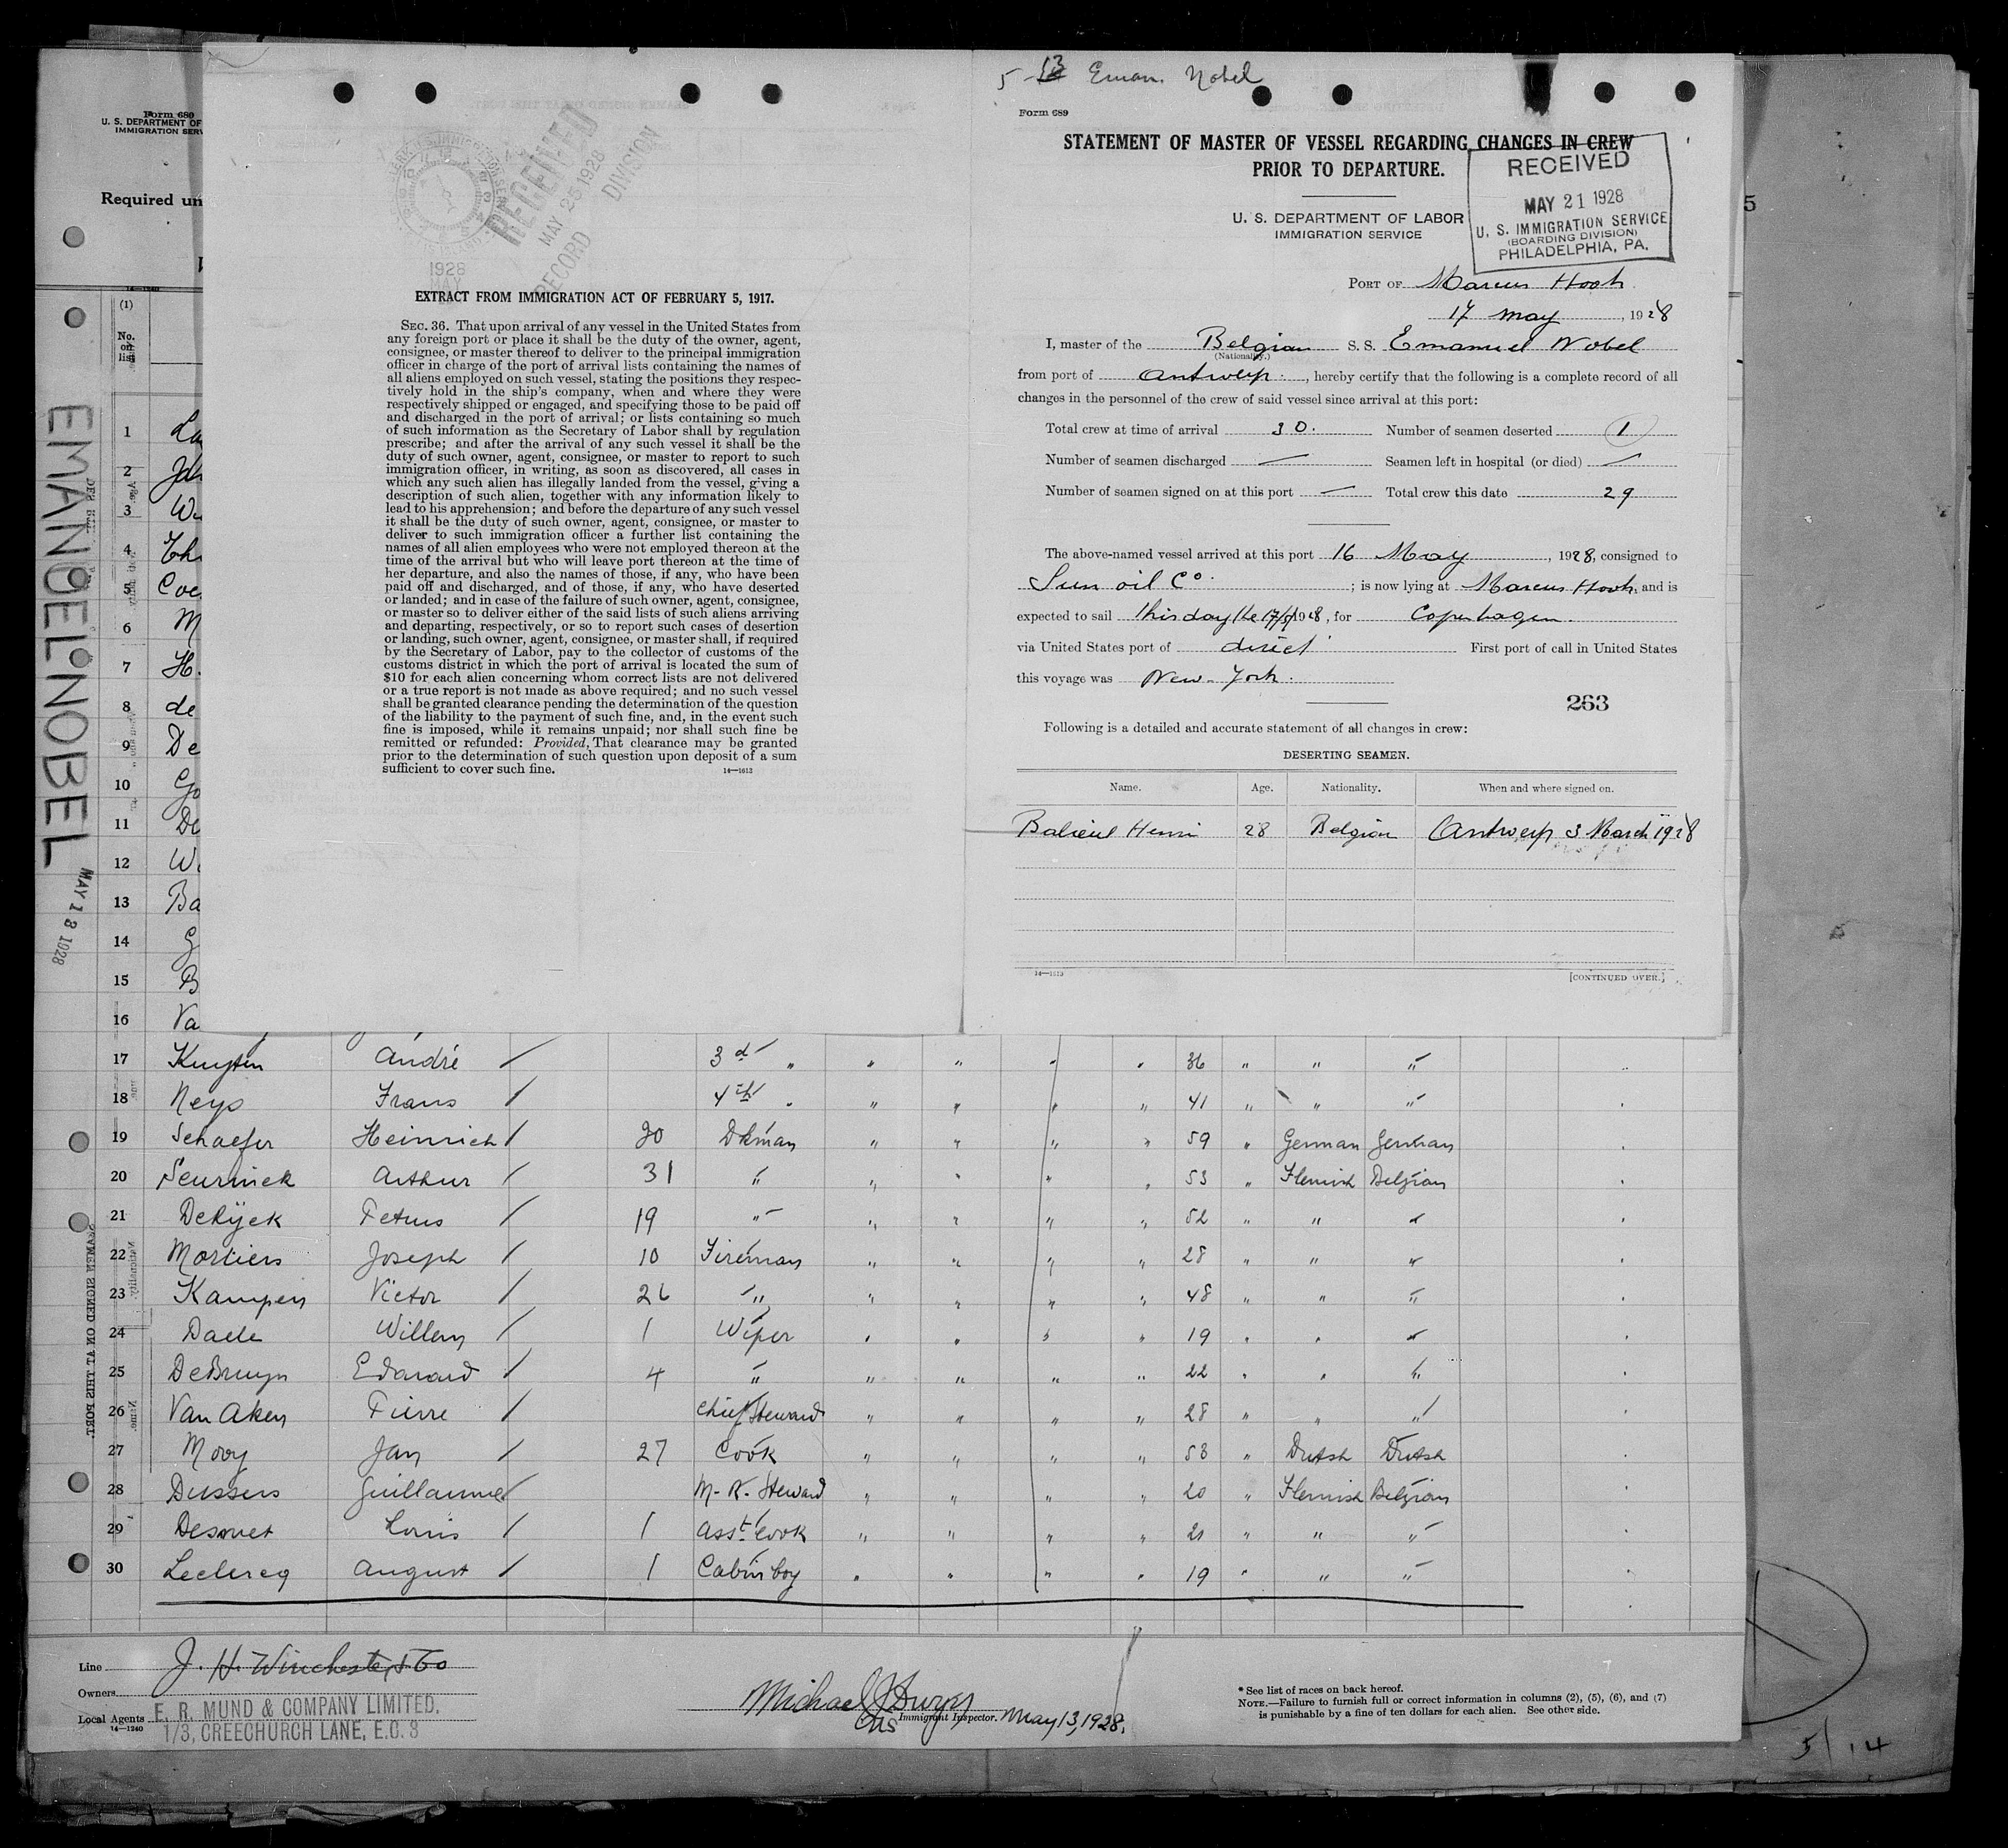 5-13 Eman. Nobel
Form 689
STATEMENT OF MASTER OF VESSEL REGARDING CHANGES IN CREW
PRIOR TO DEPARTURE.
U. S. DEPARTMENT OF LABOR
IMMIGRATION SERVICE
RECEIVED
MAY 21 1928
U. S. IMMIGRATION SERVICE
(BOARDING DIVISION)
PHILADELPHIA, PA.
PORT OF Marcus Hook
17 May, 1928
I, master of the Belgian S. S. Emanuel Nobel
(Nationality.)
from port of Antwerp., hereby certify that the following is a complete record of all
changes in the personnel of the crew of said vessel since arrival at this port:
Total crew at time of arrival 30. Number of seamen deserted 1
Number of seamen discharged — Seamen left in hospital (or died) —
Number of seamen signed on at this port — Total crew this date 29
The above-named vessel arrived at this port 16 May, 1928, consigned to
Sun oil Co.; is now lying at Marcus Hook, and is
expected to sail this day the 17/5/1928, for Copenhagen.
via United States port of direct First port of call in United States
this voyage was New-York.
263
Following is a detailed and accurate statement of all changes in crew:
DESERTING SEAMEN.
Name. Age. Nationality. When and where signed on.
Henri 28 Belgian Antwerp 3 March 1928
14—1613
[CONTINUED OVER.]
RECEIVED
MAY 25 1928
RECORD DIVISION
1928
EXTRACT FROM IMMIGRATION ACT OF FEBRUARY 5, 1917.
SEC. 36. That upon arrival of any vessel in the United States from
any foreign port or place it shall be the duty of the owner, agent,
consignee, or master thereof to deliver to the principal immigration
officer in charge of the port of arrival lists containing the names of
all aliens employed on such vessel, stating the positions they respec-
tively hold in the ship's company, when and where they were
respectively shipped or engaged, and specifying those to be paid off
and discharged in the port of arrival; or lists containing so much
of such information as the Secretary of Labor shall by regulation
prescribe; and after the arrival of any such vessel it shall be the
duty of such owner, agent, consignee, or master to report to such
immigration officer, in writing, as soon as discovered, all cases in
which any such alien has illegally landed from the vessel, giving a
description of such alien, together with any information likely to
lead to his apprehension; and before the departure of any such vessel
it shall be the duty of such owner, agent, consignee, or master to
deliver to such immigration officer a further list containing the
names of all alien employees who were not employed thereon at the
time of the arrival but who will leave port thereon at the time of
her departure, and also the names of those, if any, who have been
paid off and discharged, and of those, if any, who have deserted
or landed; and in case of the failure of such owner, agent, consignee,
or master so to deliver either of the said lists of such aliens arriving
and departing, respectively, or so to report such cases of desertion
or landing, such owner, agent, consignee, or master shall, if required
by the Secretary of Labor, pay to the collector of customs of the
customs district in which the port of arrival is located the sum of
$10 for each alien concerning whom correct lists are not delivered
or a true report is not made as above required; and no such vessel
shall be granted clearance pending the determination of the question
of the liability to the payment of such fine, and, in the event such
fine is imposed, while it remains unpaid; nor shall such fine be
remitted or refunded: Provided, That clearance may be granted
prior to the determination of such question upon deposit of a sum
sufficient to cover such fine.
14—1613
Form 689
U. S. DEPARTMENT OF
IMMIGRATION SERV
Required un
EMANUEL NOBEL
MAY 13 1928
(1)
No.
on
list
1 La
2 Joh
3
4 Th
5 Coe
6 M
7 H.
8 de
9 De
10 Go
11 De
12 W
13 Ba
14 G
15 B
16 Va
17 Kuyten André 3d " " " " " 36 " " "
18 Neys Frans 4th " " " " " 41 " " "
19 Schaefer Heinrich 20 Dkman " " " " 59 " German German
20 Seurinck Arthur 31 " " " " " 53 " Flemish Belgian
21 DeRijck Petrus 19 " " " " " 52 " " "
22 Mortiers Joseph 10 Fireman " " " " 28 " " "
23 Kampen Victor 26 " " " " " 48 " " "
24 Daele Willem 1 Wiper " " " " 19 " " "
25 DeBruyn Edouard 4 " " " " " 22 " " "
26 Van Aken Pierre Chief Steward " " " " 28 " " "
27 Mooy Jan 27 Cook " " " " 53 " Dutsh Dutsh
28 Dussers Guillaume M-R. Steward " " " " 20 " Flemish Belgian
29 Desmet Louis 1 asst. Cook " " " " 21 " " "
30 Leclercq August 1 Cabin boy " " " " 19 " " "
Line J. H. Winchester & Co
Owners
Local Agents E. R. MUND & COMPANY LIMITED.
1/3, CREECHURCH LANE, E.C. 3
14—1240
Michael J Dwyer
Immigrant Inspector. May 13, 1928.
* See list of races on back hereof.
NOTE.—Failure to furnish full or correct information in columns (2), (5), (6), and (7)
is punishable by a fine of ten dollars for each alien. See other side.
5/14